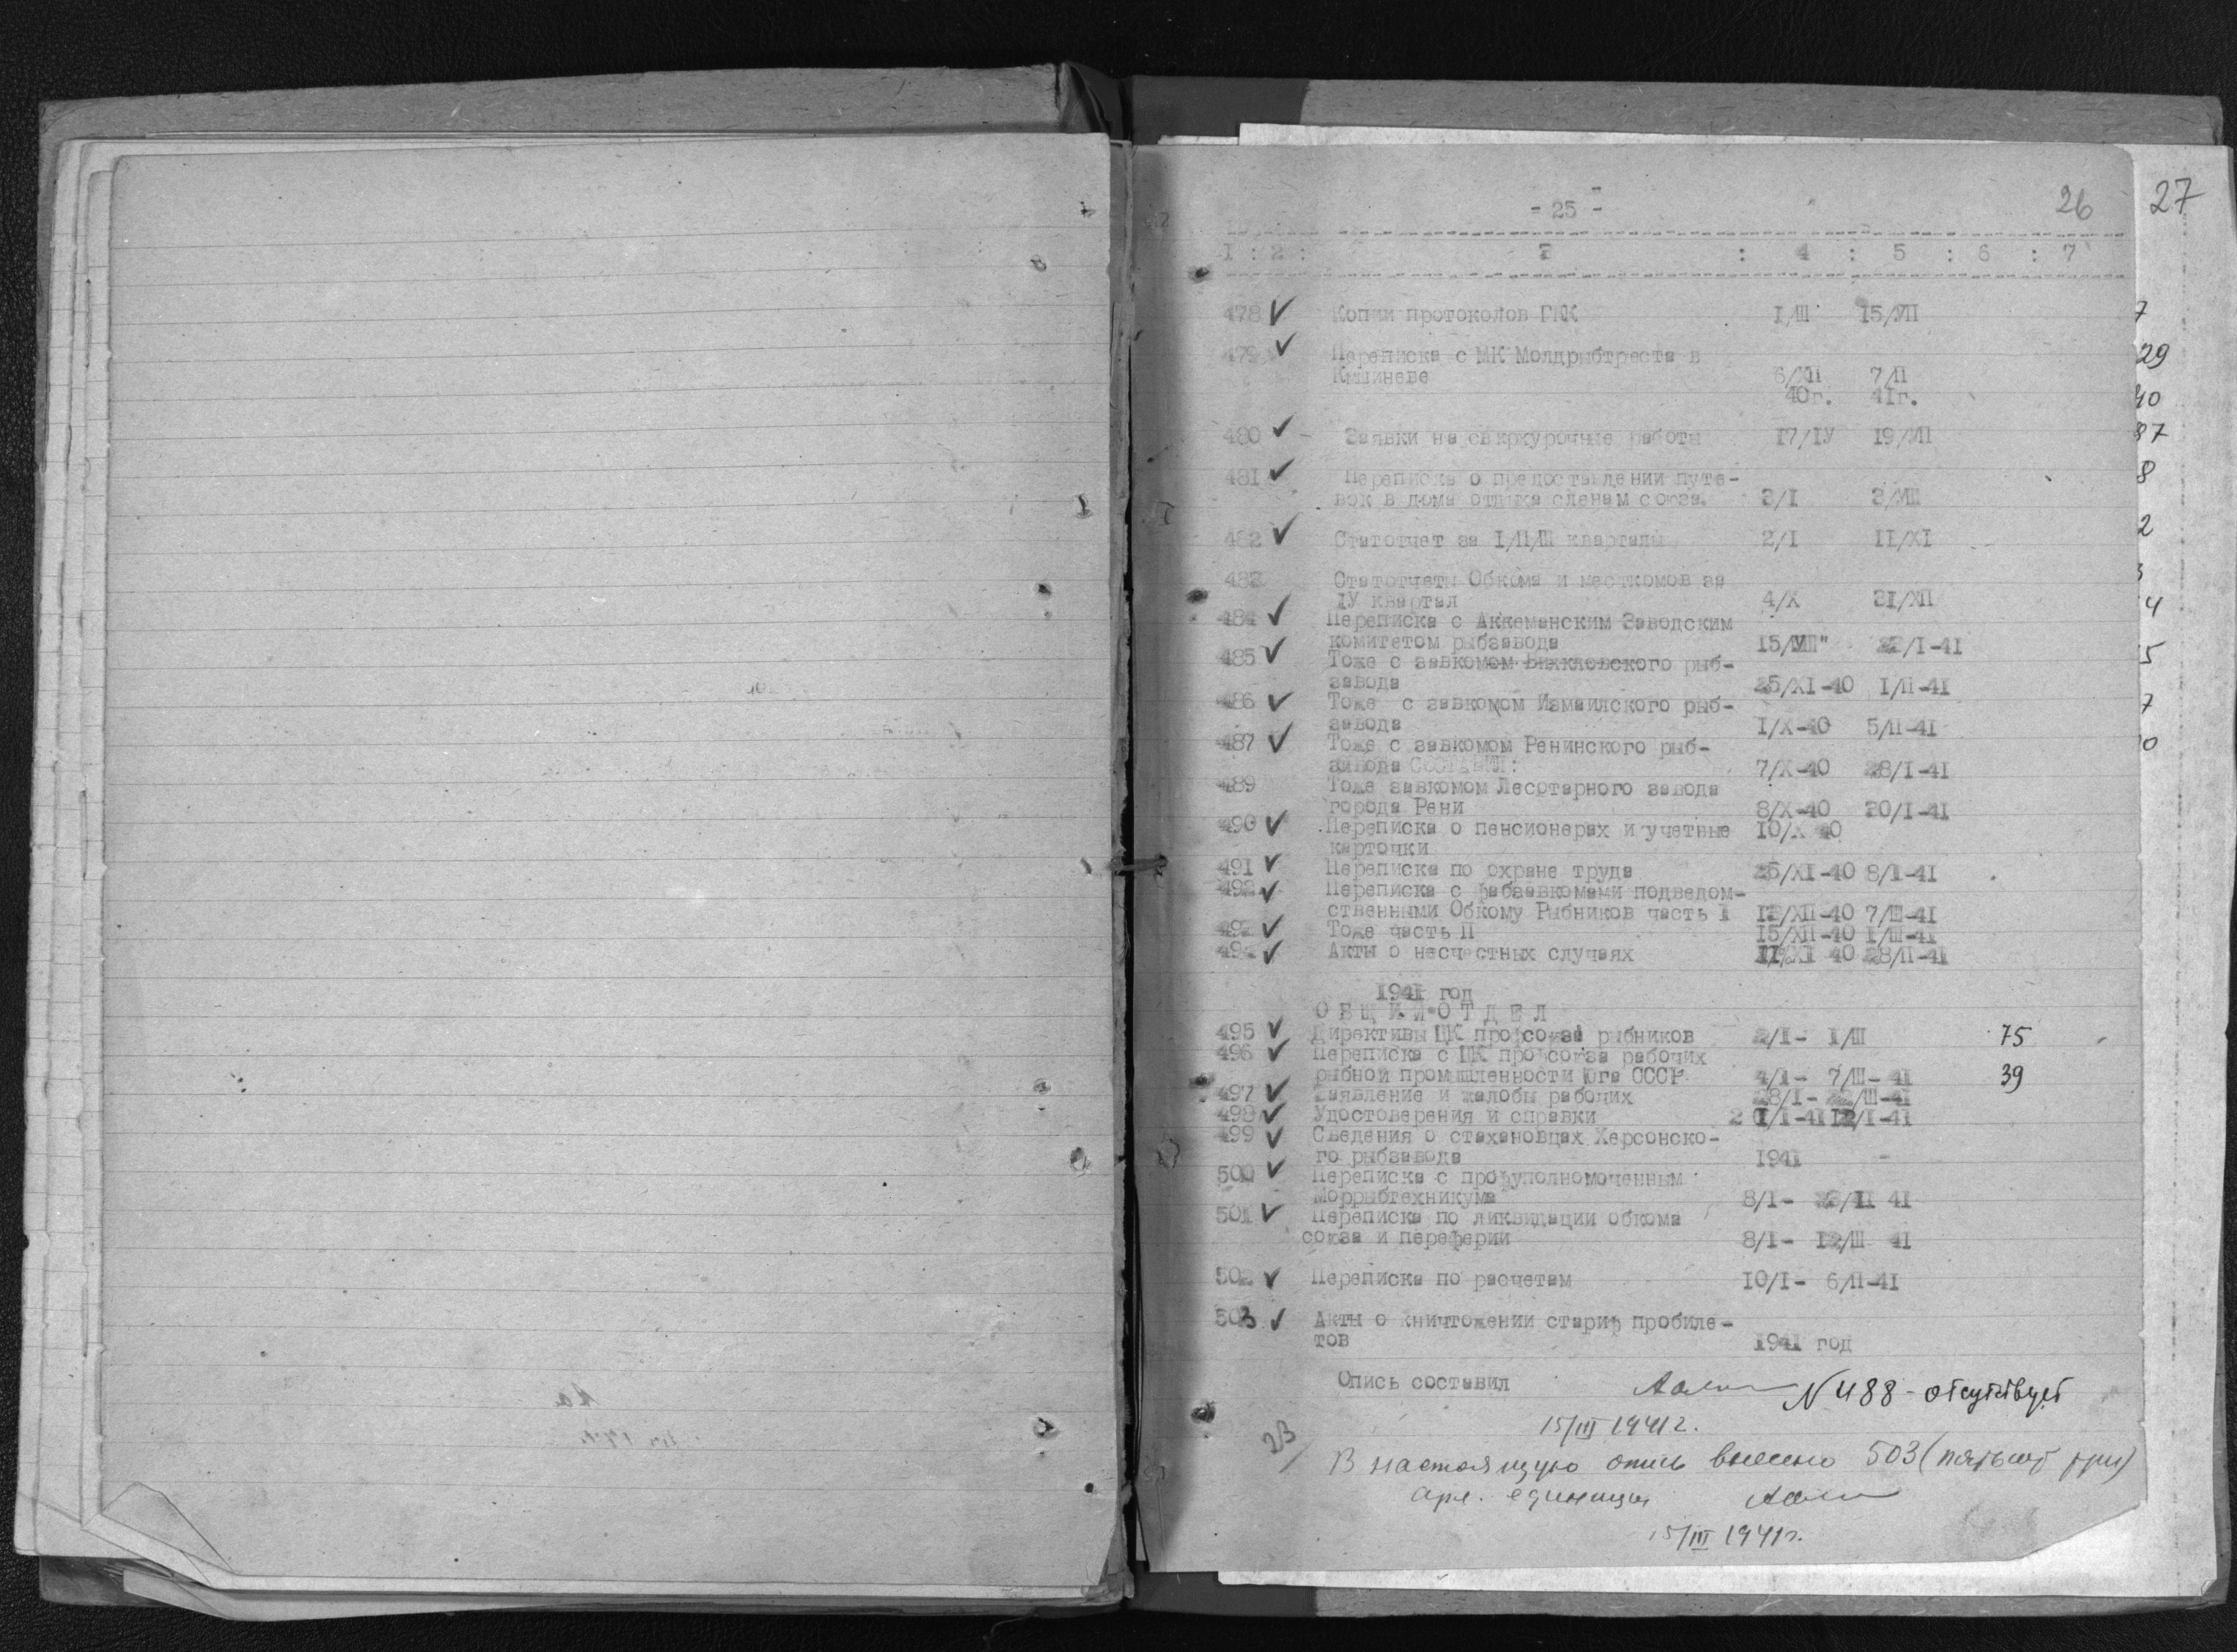 - 25 -
26
27
1 : 2 : 3 : 4 : 5 : 6 : 7
478 Копии протоколов ГКК I/Ш 15/УП
479 Переписка с МК Молдрыбтреста в
Кишиневе 6/ХП 7/П
40г. 41г.
480 - Заявки на сверхурочные работы 17/IУ 19/УП
481 Переписка о предоставлении путе-
вок в дома отдыха сленам союза. 3/I 3/УШ
482 Статотчет за I/П/Ш кварталы 2/I II/XI
483 Статотчеты Обкома и месткомов за
IУ квартал 4/Х 31/ХП
484 Переписка с Аккеманским Заводским
комитетом рыбзавода 15/УШ" 22/I-41
485 Тоже с завкомом рыб-
завода 25/XI-40 I/П-41
486 Тоже с завкомом Измаилского рыб-
завода I/Х-40 5/П-41
487 Тоже с завкомом Ренинского рыб-
завода СОСТАВИЛ: 7/Х-40 28/I-41
489 Тоже завкомом Лесотарного завода
города Рени 8/Х-40 30/I-41
490 Переписка о пенсионерах и учетные 10/Х 40
карточки
491 Переписка по охране труда 25/XI-40 8/I-41
492 Переписка с фабзавкомами подведом-
ственными Обкому Рыбников часть I 12/ХП-40 7/Ш-41
493 Тоже часть П 15/ХП-40 I/Ш-41
494 Акты о несчестных случаях 40 28/П-41
1941 год
ОБЩИЙ ОТДЕЛ
495 Директивы ЦК профсоюза рыбников 2/I- I/Ш 75
496 Переписка с ЦК профсоюза рабочих
рыбной промышленности Юга СССР 4/I- 7/Ш-41 39
497 Заявление и жалобы рабочих 28/I- /Ш-41
498 Удостоверения и справки 2 I/I-41 12/I-41
499 Сведения о стахановцах Херсонско-
го рыбзавода 1941 -
500 Переписка с профуполномоченным
Моррыбтехникума 8/I- 41
501 Переписка по ликвидации обкома
союза и переферии 8/I- 12/Ш 41
502 Переписка по расчетам 10/I- 6/П-41
503 Акты о кничтожении стариф пробиле-
тов 1941 год
Опись составил
N 488 - отсутствует
15/III 1941г.
23
В настоящую опись внесено 503 (пятьсот три)
арх. единицы
15/III 1941г.
7
29
40
87
8
2
3
4
5
7
0